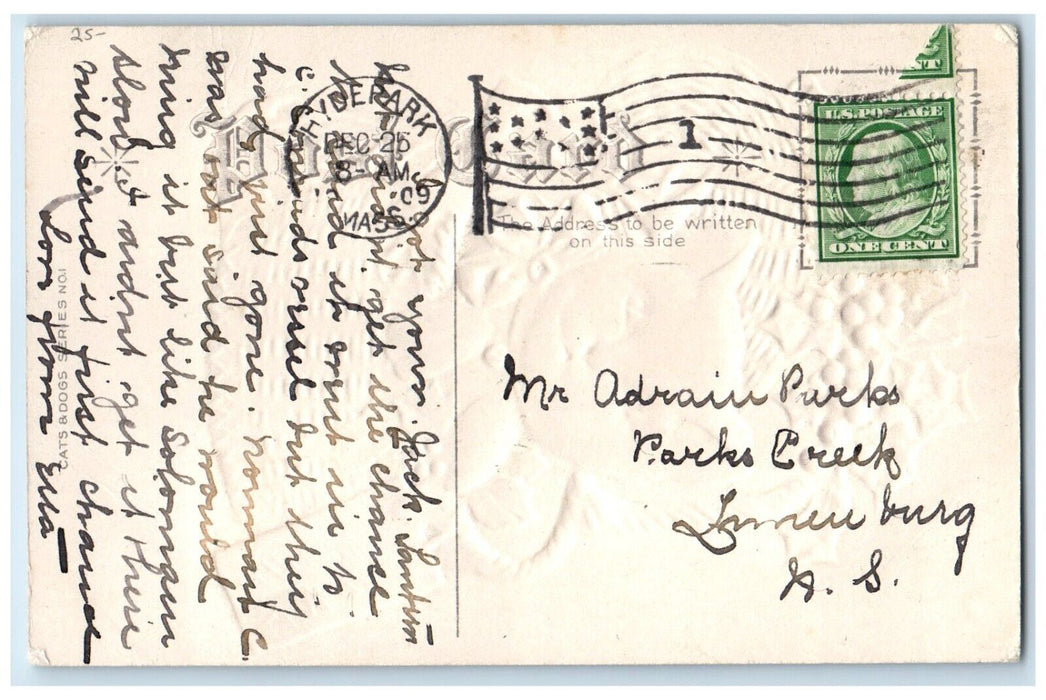 25-
Post Card
HYDE PARK
DEC 25
8-AM
09
MASS.
1
U.S. POSTAGE
ONE CENT
The Address to be written
on this side
CATS & DOGS SERIES NO.1
Mr Adrain Parks
Parks Creek
Lunen burg
N. S.
got your Jack. Lantern
but didnt get the chanse
to send it sent in to
C. Eminds vessel but they
had just gone. Norman C.
was not sind he would
bring it but like Solomgun
slond I wednt get it there
will send it first chance
Love from Ella